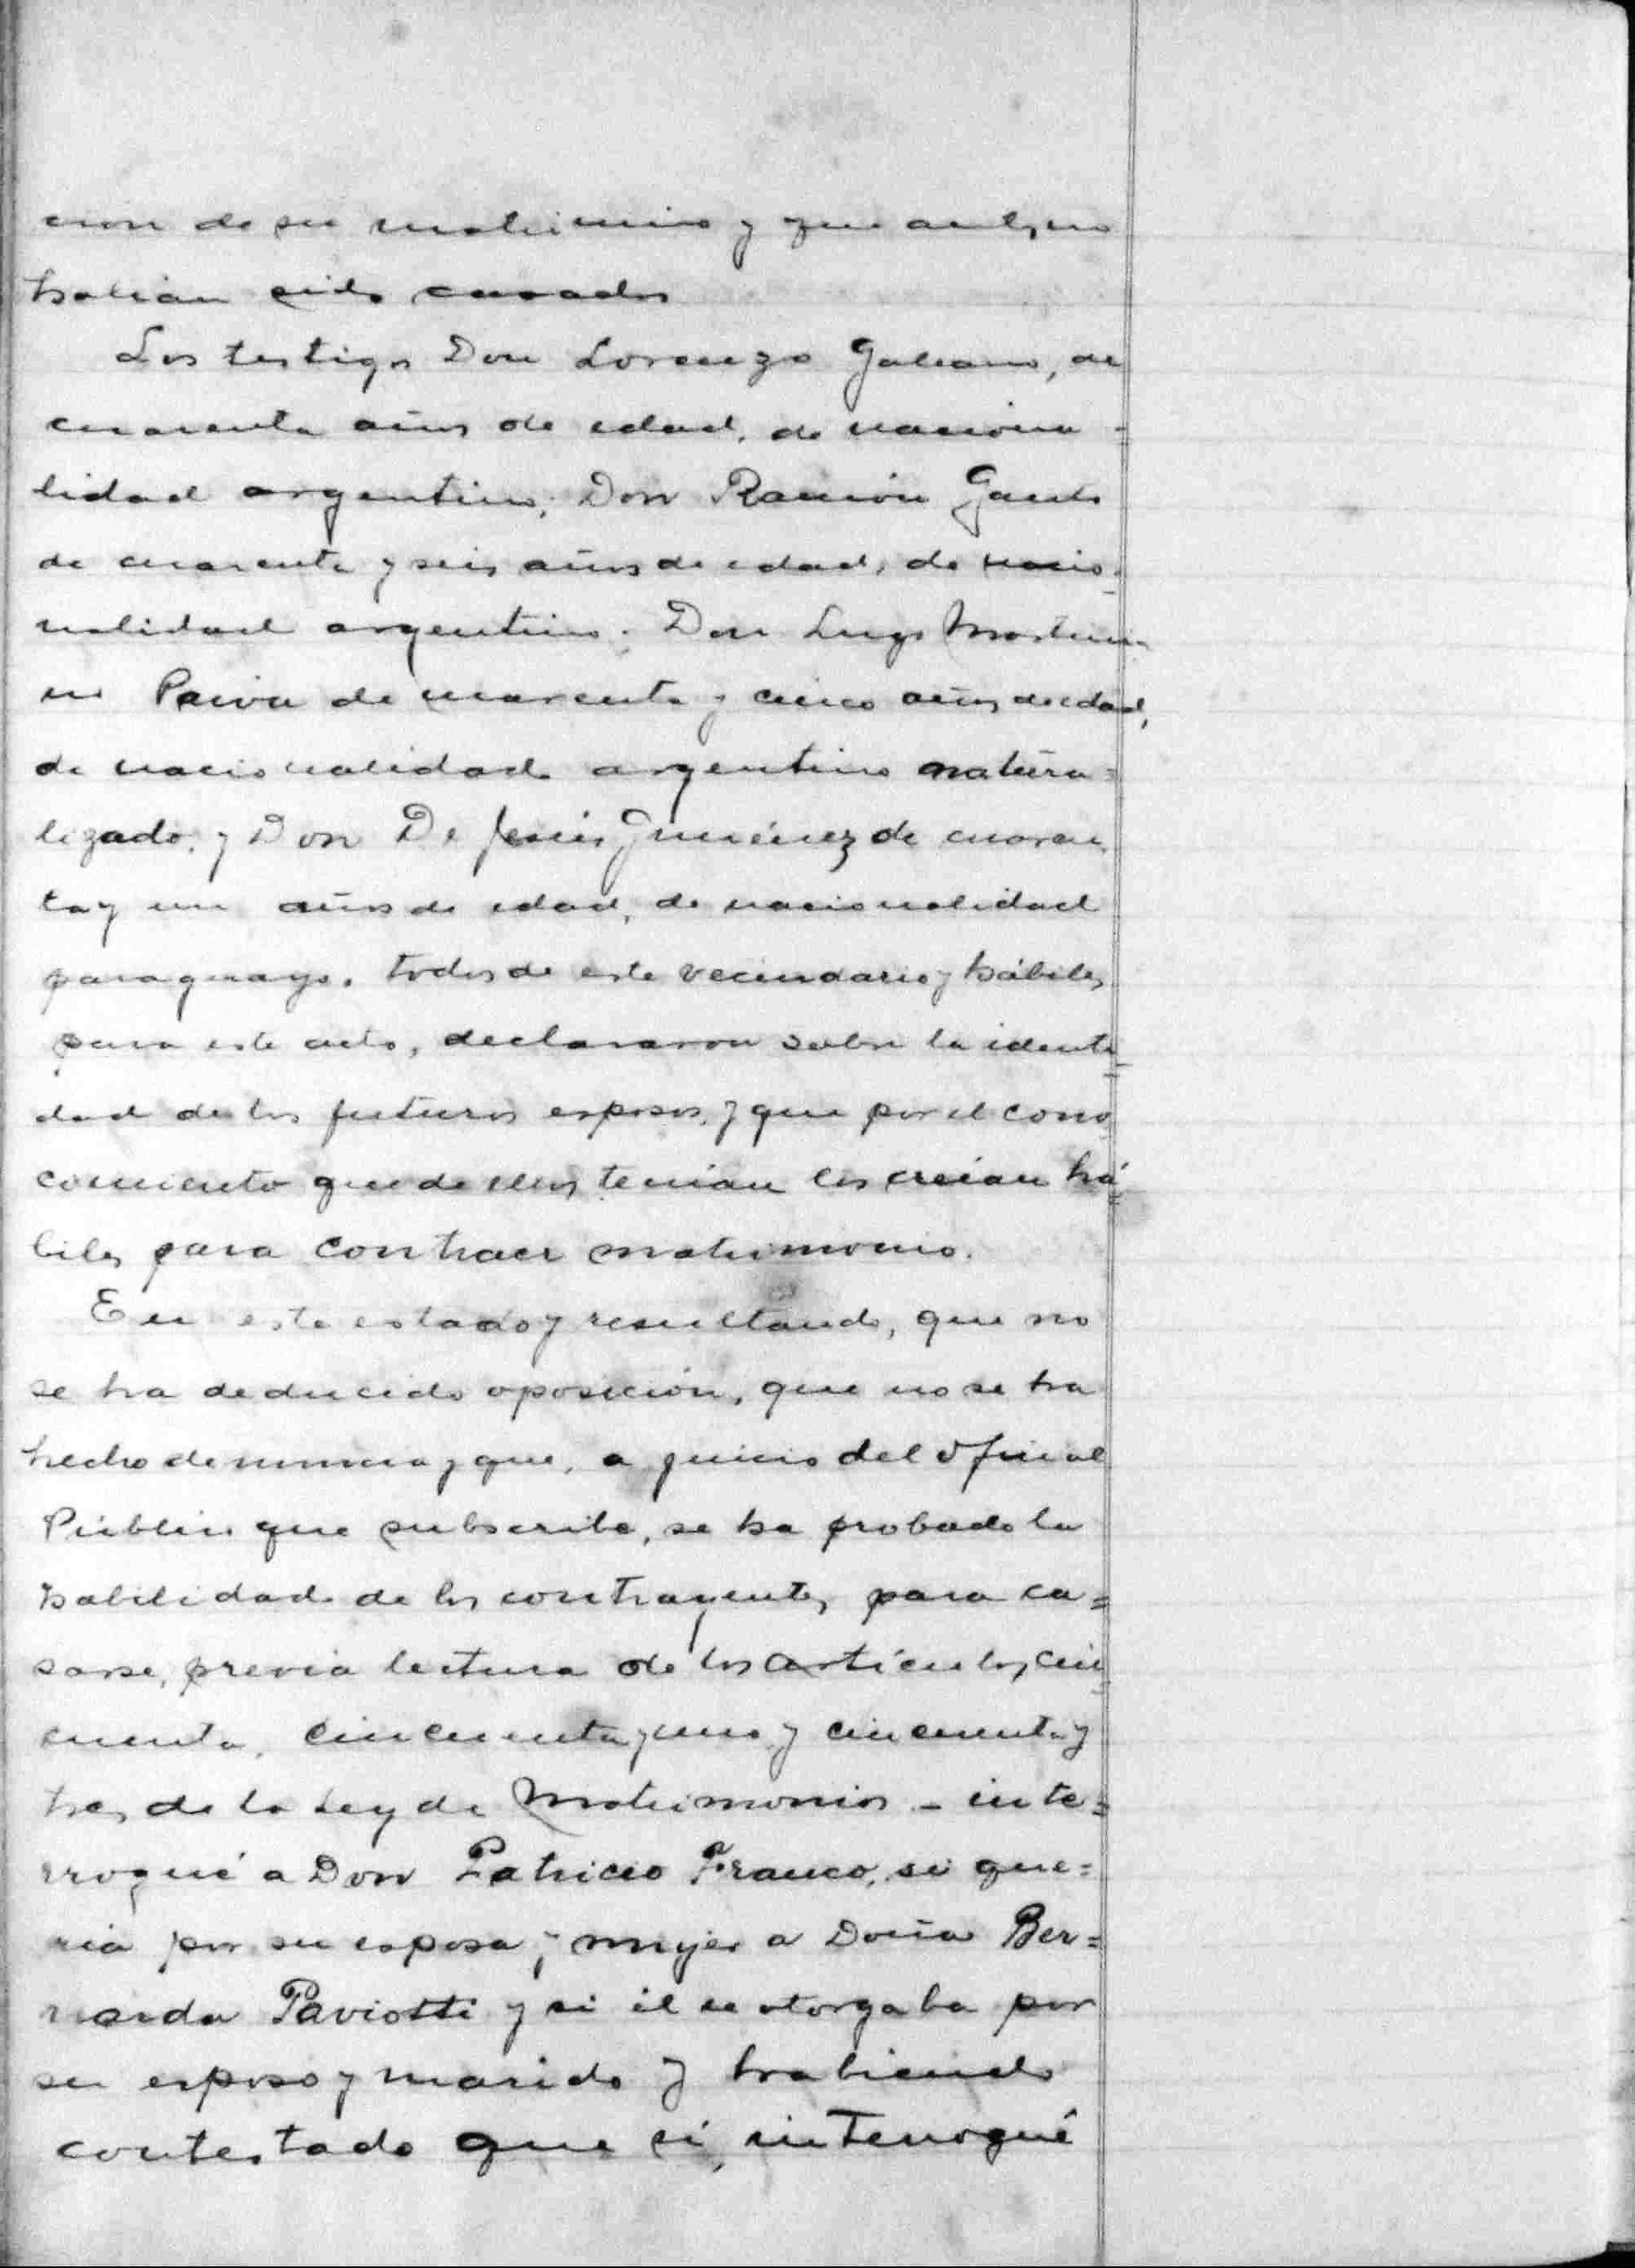 cion de su matrimonio y que antes no
habian sido casados
Los testigos Don Lorenzo Galeano, de
cuarenta años de edad, de naciona-
lidad argentino; Don Ramón Gauto
de cuarenta y seis años de edad, de nacio-
nalidad argentino; Don Lugo
Paiva de cuarenta y cinco años de edad,
de nacionalidad argentino natura=
lizado, y Don De Jesús Jiménez de cuaren-
ta y un años de edad, de nacionalidad
paraguayo, todos de este vecindario y hábiles
para este acto, declararon sobre la identi-
dad de los futuros esposos, y que por el cono
cimiento que de ellos tenian los creian há=
biles para contraer matrimonio.
En este estado y resultando, que no
se ha deducido oposición, que no se ha
hecho denuncia y que, a juicio del Oficial
Público que subscribe, se ha probado la
habilidad de los contrayentes para ca=
sarse, previa lectura de los artículos cin=
cuenta, cincuenta y uno y cincuenta y
tres de la Ley de Matrimonios - inte=
rrogué a Don Patricio Franco, si que=
ria por su esposa y mujer a Doña Ber=
narda Paviotti y si él se otorgaba por
su esposo y marido y habiendo
contestado que sí, interrogué